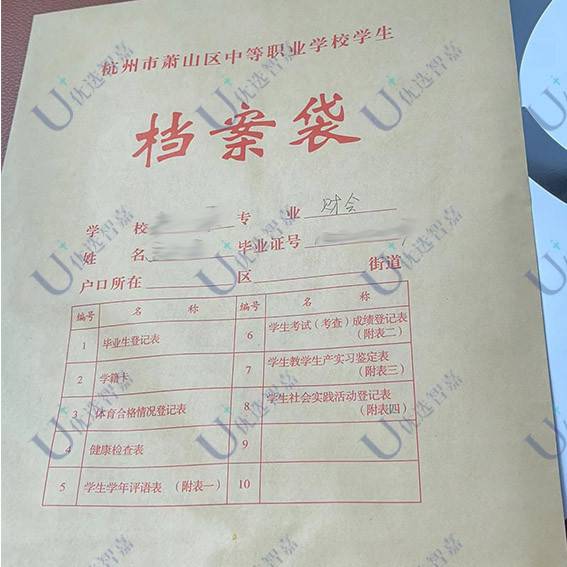 杭州市萧山区中等职业学校学生
档案袋
学 校 专 业 财会
姓 名 毕业证号
户口所在 区 街道
编号 名 称 编号 名 称
1 毕业生登记表 6 学生考试（考查）成绩登记表（附表二）
2 学籍卡 7 学生教学生产实习鉴定表（附表三）
3 体育合格情况登记表 8 学生社会实践活动登记表（附表四）
4 健康检查表 9
5 学生学年评语表 （附表一） 10
U+优选智嘉